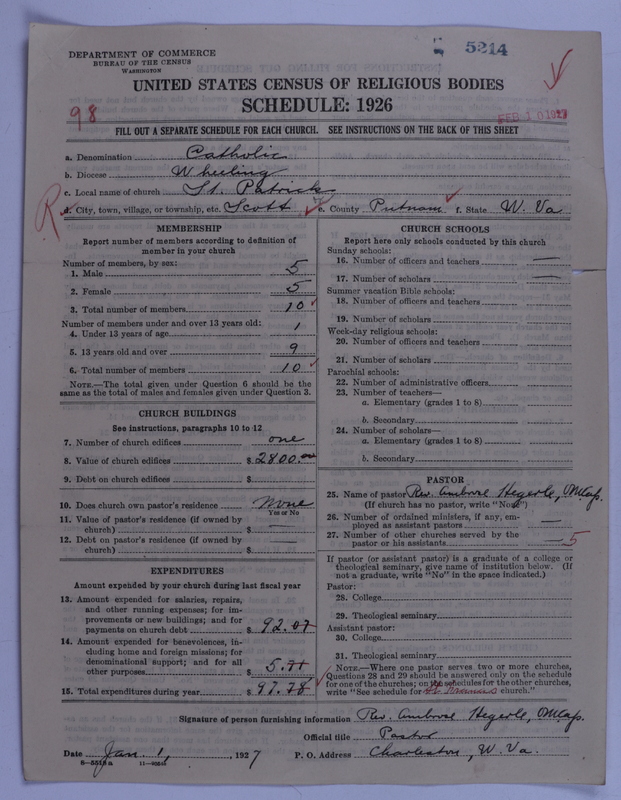 5214
DEPARTMENT OF COMMERCE
BUREAU OF THE CENSUS
WASHINGTON
UNITED STATES CENSUS OF RELIGIOUS BODIES
SCHEDULE: 1926
98
FEB 10 1927
FILL OUT A SEPARATE SCHEDULE FOR EACH CHURCH. SEE INSTRUCTIONS ON THE BACK OF THIS SHEET
a. Denomination Catholic
b. Diocese Wheeling
c. Local name of church St. Patrick
R d. City, town, village, or township, etc. Scott e. County Putnam f. State W. Va
MEMBERSHIP
Report number of members according to definition of
member in your church
Number of members, by sex:
1. Male 5
2. Female 5
3. Total number of members 10
Number of members under and over 13 years old:
4. Under 13 years of age 1
5. 13 years old and over 9
6. Total number of members 10
NOTE.—The total given under Question 6 should be the
same as the total of males and females given under Question 3.
CHURCH BUILDINGS
See instructions, paragraphs 10 to 12
7. Number of church edifices one
8. Value of church edifices $ 2800.00
9. Debt on church edifices $
10. Does church own pastor's residence None
Yes or No
11. Value of pastor's residence (if owned by
church) $ —
12. Debt on pastor's residence (if owned by
church) $ —
EXPENDITURES
Amount expended by your church during last fiscal year
13. Amount expended for salaries, repairs,
and other running expenses; for im-
provements or new buildings; and for
payments on church debt $ 92.07
14. Amount expended for benevolences, in-
cluding home and foreign missions; for
denominational support; and for all
other purposes $ 5.71
15. Total expenditures during year $ 97.78
CHURCH SCHOOLS
Report here only schools conducted by this church
Sunday schools:
16. Number of officers and teachers —
17. Number of scholars —
Summer vacation Bible schools:
18. Number of officers and teachers
19. Number of scholars
Week-day religious schools:
20. Number of officers and teachers
21. Number of scholars
Parochial schools:
22. Number of administrative officers
23. Number of teachers—
a. Elementary (grades 1 to 8)
b. Secondary
24. Number of scholars—
a. Elementary (grades 1 to 8)
b. Secondary
PASTOR
25. Name of pastor Rev. Ambrose Hegerle, OMCap.
(If church has no pastor, write "None")
26. Number of ordained ministers, if any, em-
ployed as assistant pastors —
27. Number of other churches served by the
pastor or his assistants — 5
If pastor (or assistant pastor) is a graduate of a college or
theological seminary, give name of institution below. (If
not a graduate, write "No" in the space indicated.)
Pastor:
28. College
29. Theological seminary
Assistant pastor:
30. College
31. Theological seminary
NOTE.—Where one pastor serves two or more churches,
Questions 28 and 29 should be answered only on the schedule
for one of the churches; on the schedules for the other churches,
write "See schedule for church."
Signature of person furnishing information Rev. Ambrose Hegerle, OMCap.
Official title Pastor
Date Jan. 1, 1927 P. O. Address Charleston, W. Va.